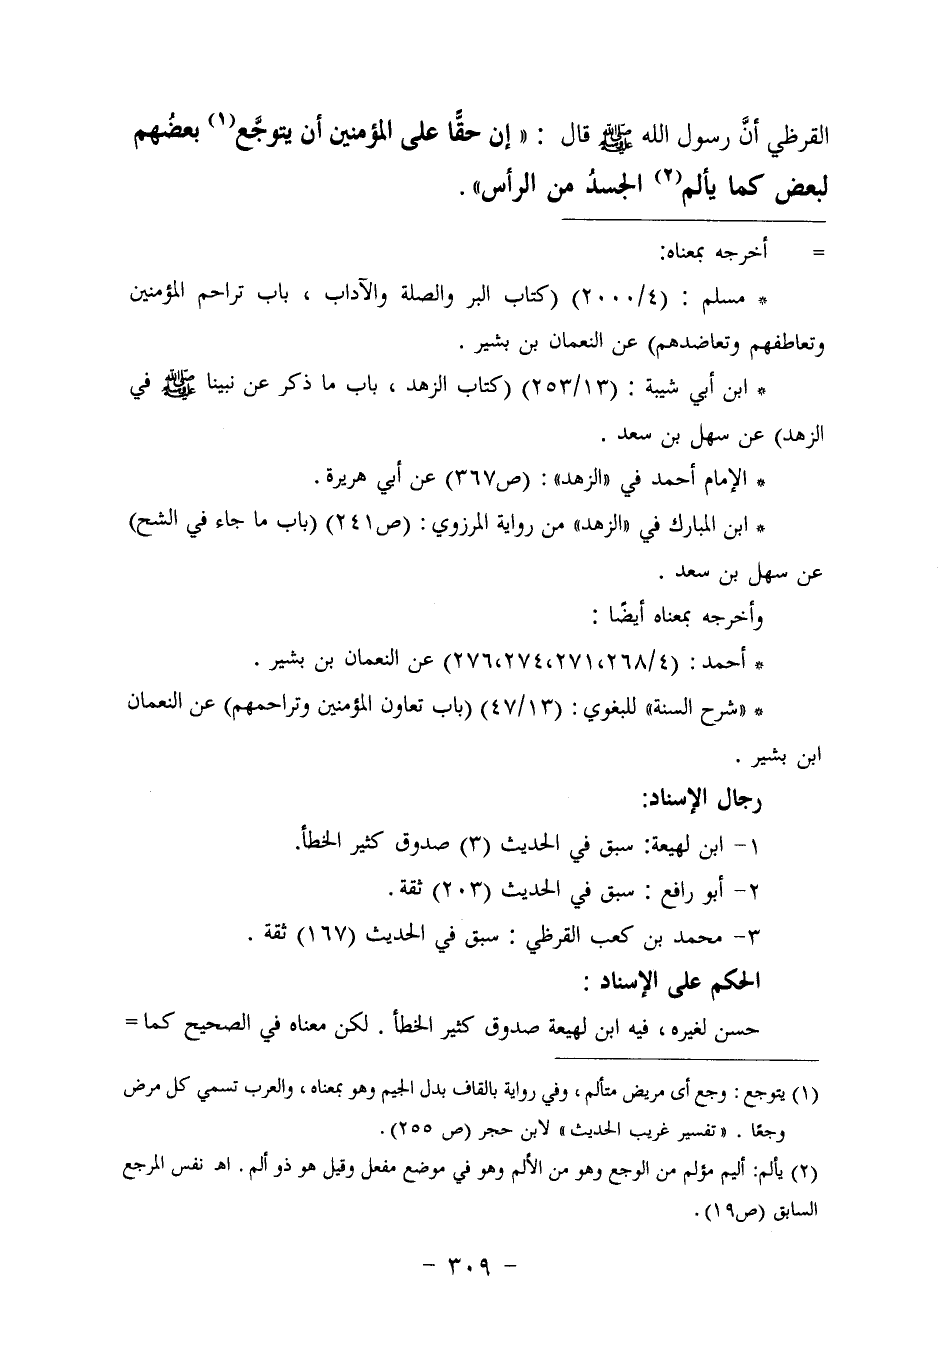 القرظي أنَّ رسول الله ﷺ قال : « إن حقًّا على المؤمنين أن يتوجَّع(١) بعضُهم
لبعض كما يألم(٢) الجسدُ من الرأس» .
= أخرجه بمعناه:
* مسلم : (٢٠٠٠/٤) (كتاب البر والصلة والآداب ، باب تراحم المؤمنين
وتعاطفهم وتعاضدهم) عن النعمان بن بشير .
* ابن أبي شيبة : (٢٥٣/١٣) (كتاب الزهد ، باب ما ذكر عن نبينا ﷺ في
الزهد) عن سهل بن سعد .
* الإمام أحمد في «الزهد» : (ص٣٦٧) عن أبي هريرة .
* ابن المبارك في «الزهد» من رواية المرزوي : (ص٢٤١) (باب ما جاء في الشح)
عن سهل بن سعد .
وأخرجه بمعناه أيضًا :
* أحمد : (٢٦٨/٤،٢٧١،٢٧٤،٢٧٦) عن النعمان بن بشير .
* «شرح السنة» للبغوي : (٤٧/١٣) (باب تعاون المؤمنين وتراحمهم) عن النعمان
ابن بشير .
رجال الإسناد:
١- ابن لهيعة: سبق في الحديث (٣) صدوق كثير الخطأ.
٢- أبو رافع : سبق في الحديث (٢٠٣) ثقة .
٣- محمد بن كعب القرظي : سبق في الحديث (١٦٧) ثقة .
الحكم على الإسناد :
حسن لغيره ، فيه ابن لهيعة صدوق كثير الخطأ . لكن معناه في الصحيح كما =
(١) يتوجع : وجع أى مريض متألم ، وفي رواية بالقاف بدل الجيم وهو بمعناه ، والعرب تسمي كل مرض
وجعًا . « تفسير غريب الحديث » لابن حجر (ص ٢٥٥) .
(٢) يألم: أليم مؤلم من الوجع وهو من الألم وهو في موضع مفعل وقيل هو ذو ألم . اهـ نفس المرجع
السابق (ص١٩) .
- ٣٠٩ -